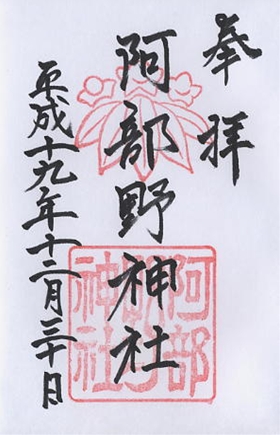 奉拝
阿部野神社
平成十九年十二月三十日
阿部野神社